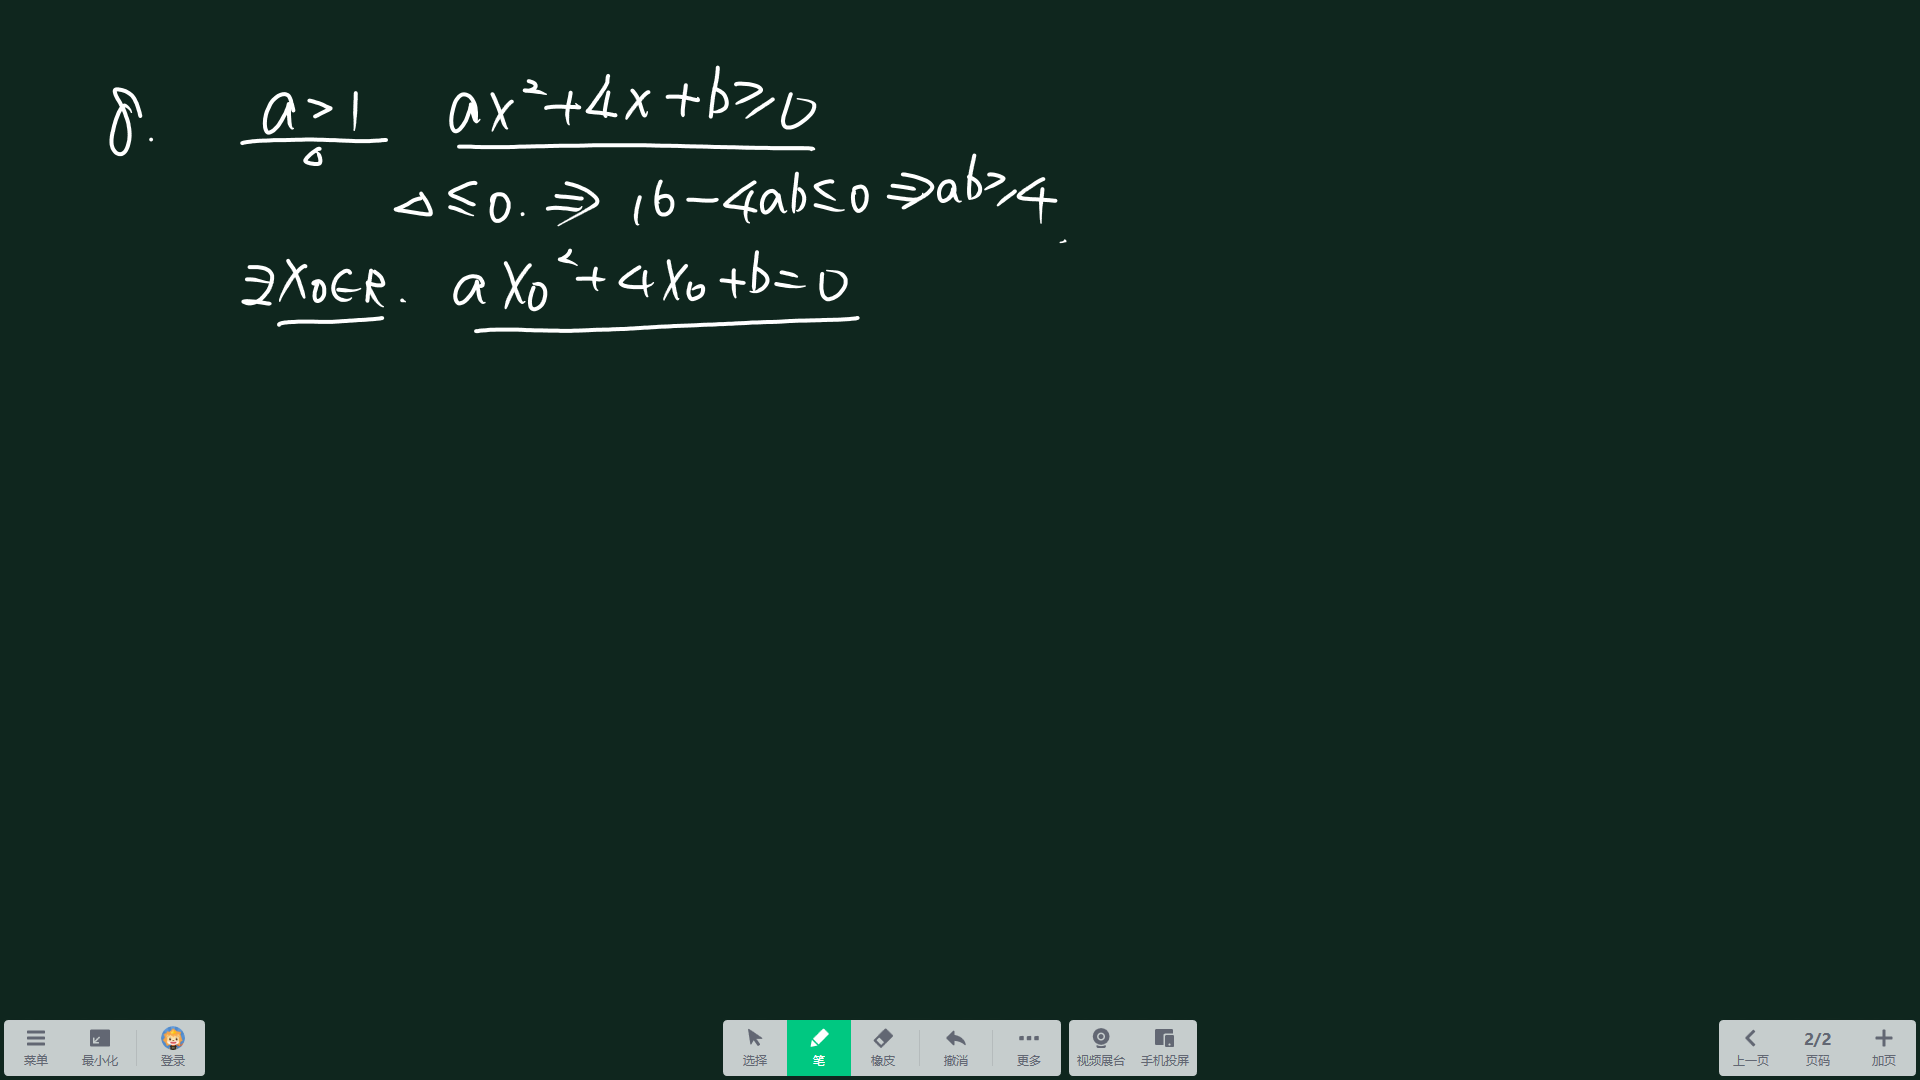 8. a>1 ax²+4x+b≥0
Δ
Δ≤0. ⇒ 16-4ab≤0 ⇒ab≥4
∃x₀∈R. ax₀²+4x₀+b=0
菜单 最小化 登录 选择 笔 橡皮 撤消 更多 视频展台 手机投屏 上一页 2/2 页码 加页